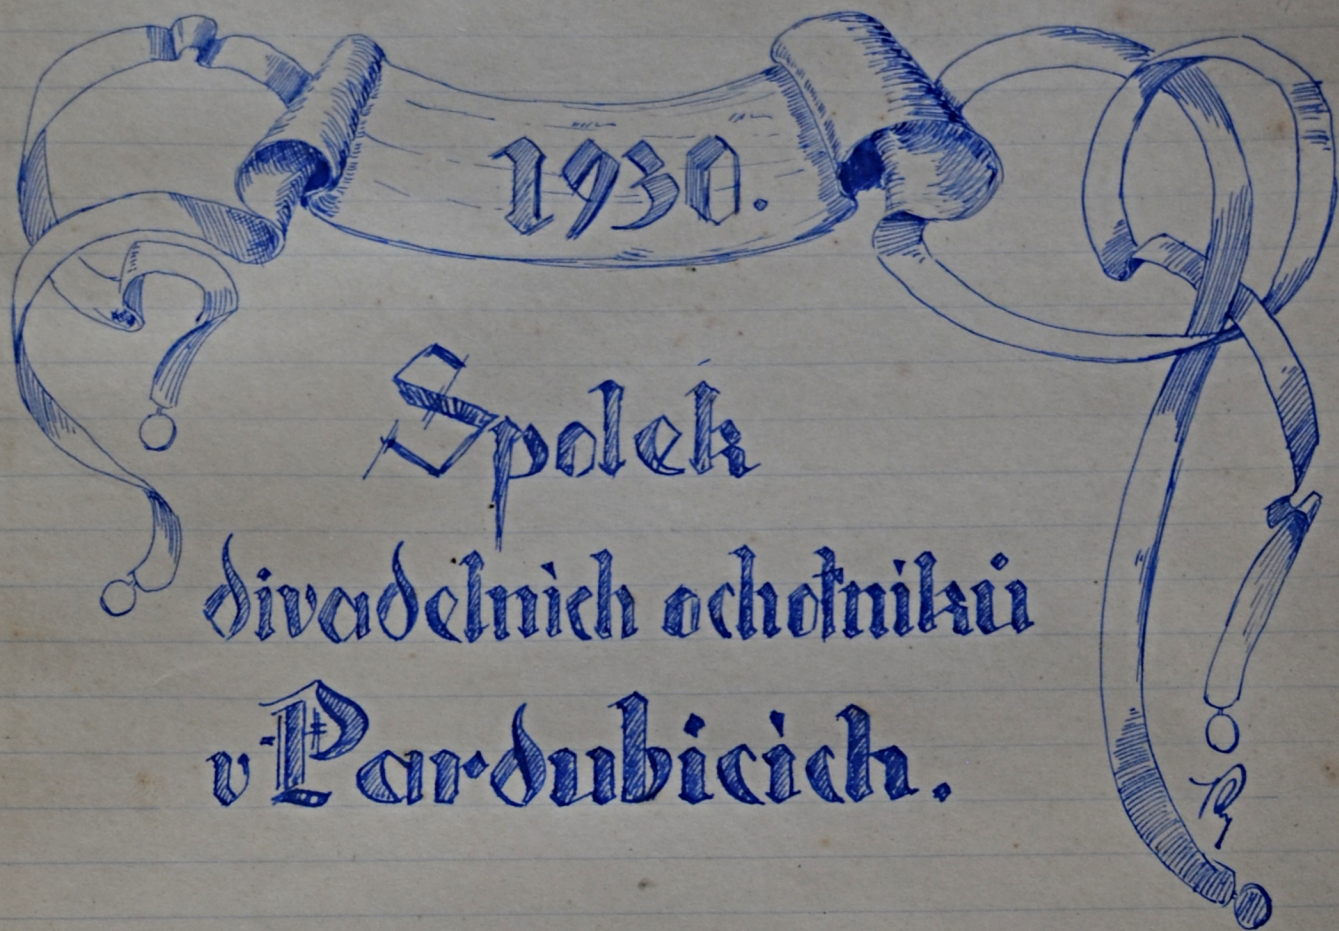 1930.
Spolek
divadelních ochotníků
v Pardubicích.